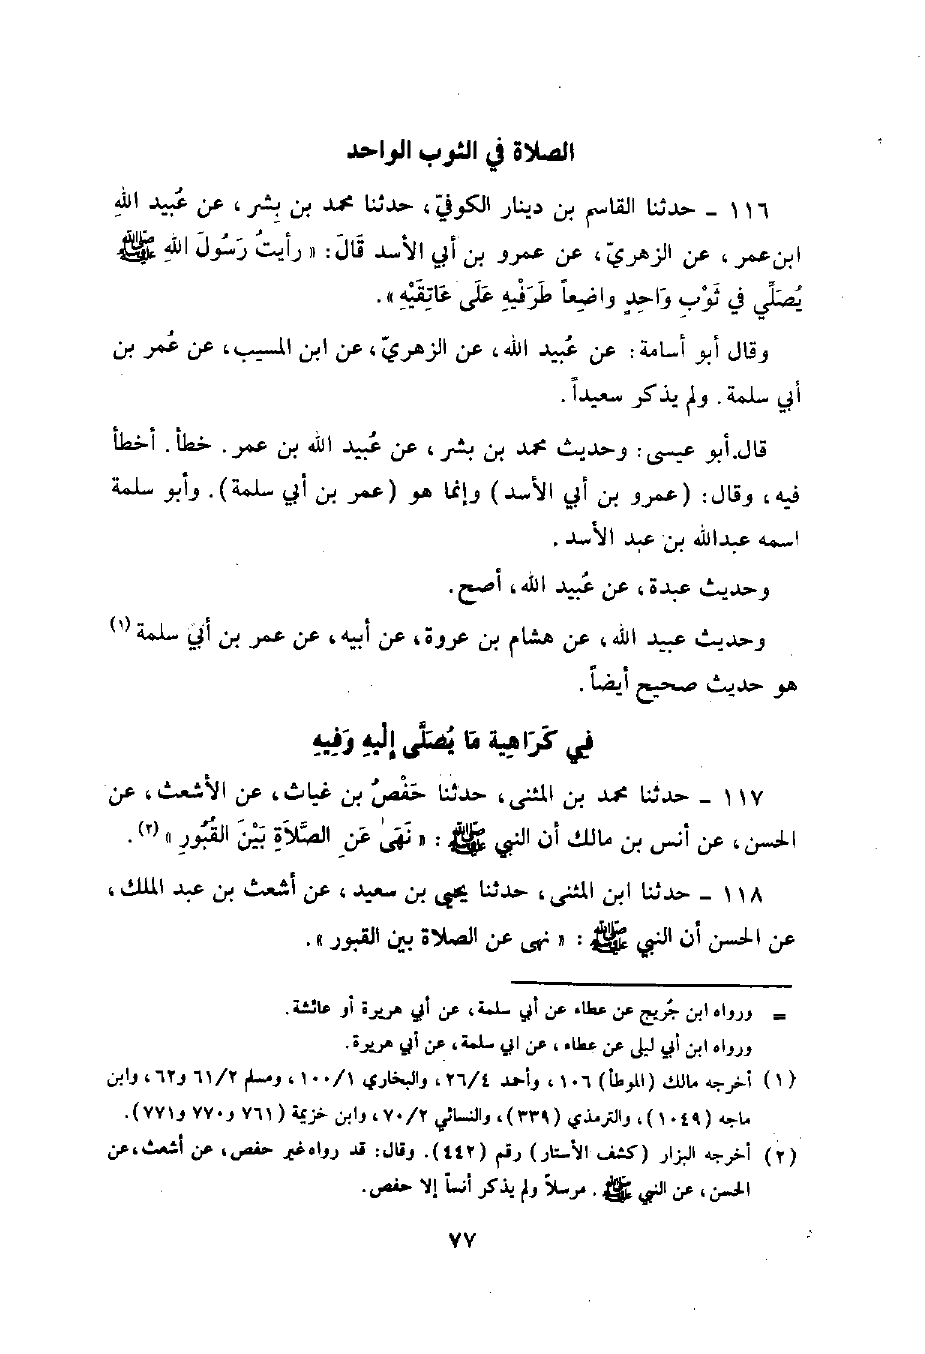 الصلاة في الثوب الواحد
١١٦ ـ حدثنا القاسم بن دينار الكوفيّ، حدثنا محمد بن بِشر، عن عُبيد اللهِ
ابن عمر، عن الزهريّ، عن عمرو بن أبي الأسد قَالَ: « رأيتُ رَسُولَ اللهِ ﷺ
يُصَلِّي في ثَوْبٍ وَاحِدٍ واضِعاً طَرَفَيْهِ عَلَى عَاتِقَيْهِ ».
وقال أبو أسامة: عن عُبيد الله، عن الزهريّ، عن ابن المسيب، عن عُمر بن
أبي سلمة. ولم يذكر سعيداً.
قال.أبو عيسى: وحديث محمد بن بشر، عن عُبيد الله بن عمر. خطأ. أخطأ
فيه، وقال: (عمرو بن أبي الأسد) وإنما هو (عمر بن أبي سلمة). وأبو سلمة
اسمه عبدالله بن عبد الأسد.
وحديث عبدة، عن عُبيد الله، أصح.
وحديث عبيد الله، عن هشام بن عروة، عن أبيه، عن عمر بن أبي سلمة (١)
هو حديث صحيح أيضاً.
فِي كَرَاهِية مَا يُصَلَّى إلَيْهِ وَفِيهِ
١١٧ ـ حدثنا محمد بن المثنى، حدثنا حَفْصُ بن غياث، عن الأشعث، عن
الحسن، عن أنس بن مالك أن النبي ﷺ: « نَهَىٰ عَنِ الصَّلَاةِ بَيْنَ القُبُورِ » (٢).
١١٨ ـ حدثنا ابن المثنى، حدثنا يحيى بن سعيد، عن أشعث بن عبد الملك،
عن الحسن أن النبي ﷺ: « نهى عن الصلاة بين القبور ».
= ورواه ابن جُريج عن عطاء عن أبي سلمة، عن أبي هريرة أو عائشة.
ورواه ابن أبي ليلى عن عطاء، عن ابي سلمة، عن أبي هريرة.
(١) أخرجه مالك (الموطأ) ١٠٦، وأحمد ٢٦/٤، والبخاري ١٠٠/١، ومسلم ٦١/٢ و٦٢، وابن
ماجه (١٠٤٩)، والترمذي (٣٣٩)، والنسائي ٧٠/٢، وابن خزيمة (٧٦١ و٧٧٠ و٧٧١).
(٢) أخرجه البزار (كشف الأستار) رقم (٤٤٢). وقال: قد رواه غير حفص، عن أشعث، عن
الحسن، عن النبي ﷺ. مرسلاً ولم يذكر أنساً إلا حفص.
٧٧